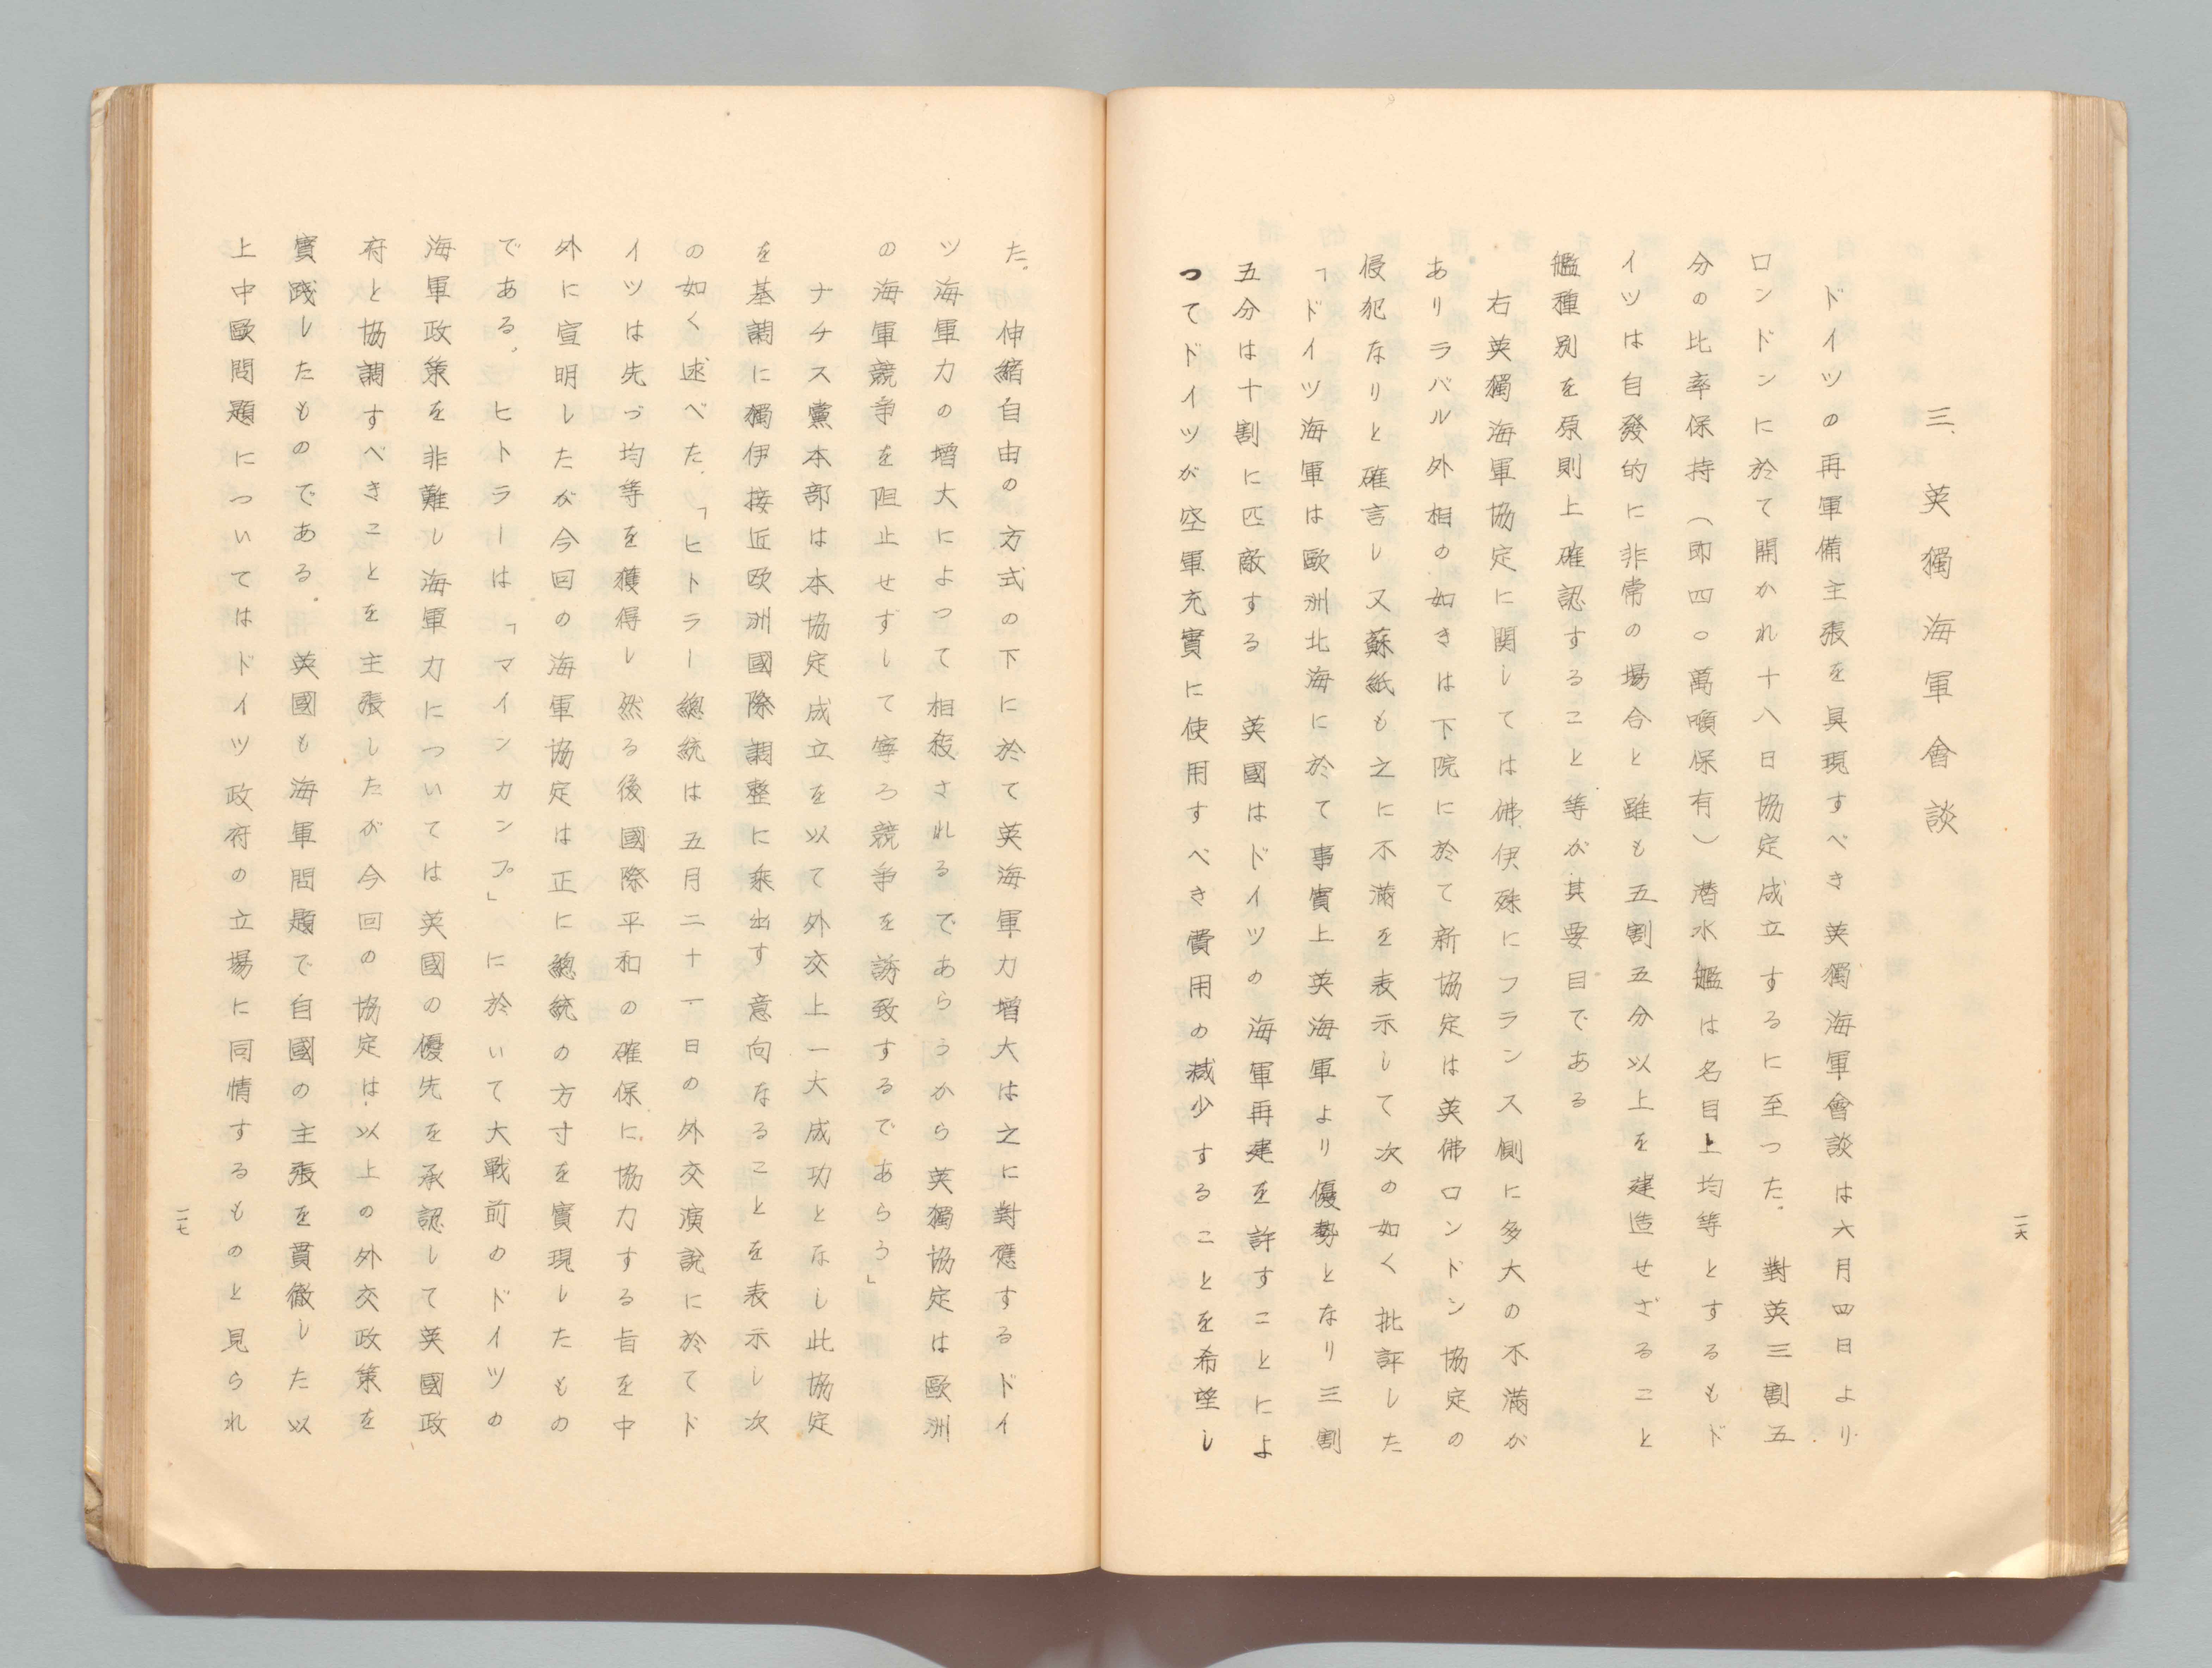 三、英獨海軍會談
ドイツの再軍備主張を具現すべき英獨海軍會談は六月四日より
ロンドンに於て開かれ十八日協定成立するに至つた。對英三割五
分の比率保持（即四〇萬噸保有）潛水艦は名目上均等とするもド
イツは自發的に非常の場合と雖も五割五分以上を建造せざること
艦種別を原則上確認すること等が其要目である
右英獨海軍協定に関しては佛、伊殊にフランス側に多大の不滿が
ありラバル外相の如きは下院に於て新協定は英佛ロンドン協定の
侵犯なりと確言し又蘇紙も之に不滿を表示して次の如く批評した
「ドイツ海軍は歐洲北海に於て事實上英海軍より優勢となり三割
五分は十割に匹敵する 英國はドイツの海軍再建を許すことによ
つてドイツが空軍充實に使用すべき費用の減少することを希望し
一二六
た。伸縮自由の方式の下に於て英海軍力増大は之に對應するドイ
ツ海軍力の増大によつて相殺されるであらうから英獨協定は歐洲
の海軍競争を阻止せずして寧ろ競争を誘致するであらう」
ナチス黨本部は本協定成立を以て外交上一大成功となし此協定
を基調に獨伊接近欧洲國際調整に乗出す意向なることを表示し次
の如く述べた、「ヒトラー總統は五月二十一日の外交演説に於てド
イツは先づ均等を獲得し然る後國際平和の確保に協力する旨を中
外に宣明したが今回の海軍協定は正に總統の方寸を實現したもの
である、ヒトラーは「マインカンプ」に於いて大戰前のドイツの
海軍政策を非難し海軍力については英國の優先を承認して英國政
府と協調すべきことを主張したが今回の協定は以上の外交政策を
實践したものである。英國も海軍問題で自國の主張を貫徹した以
上中歐問題についてはドイツ政府の立場に同情するものと見られ
一二七